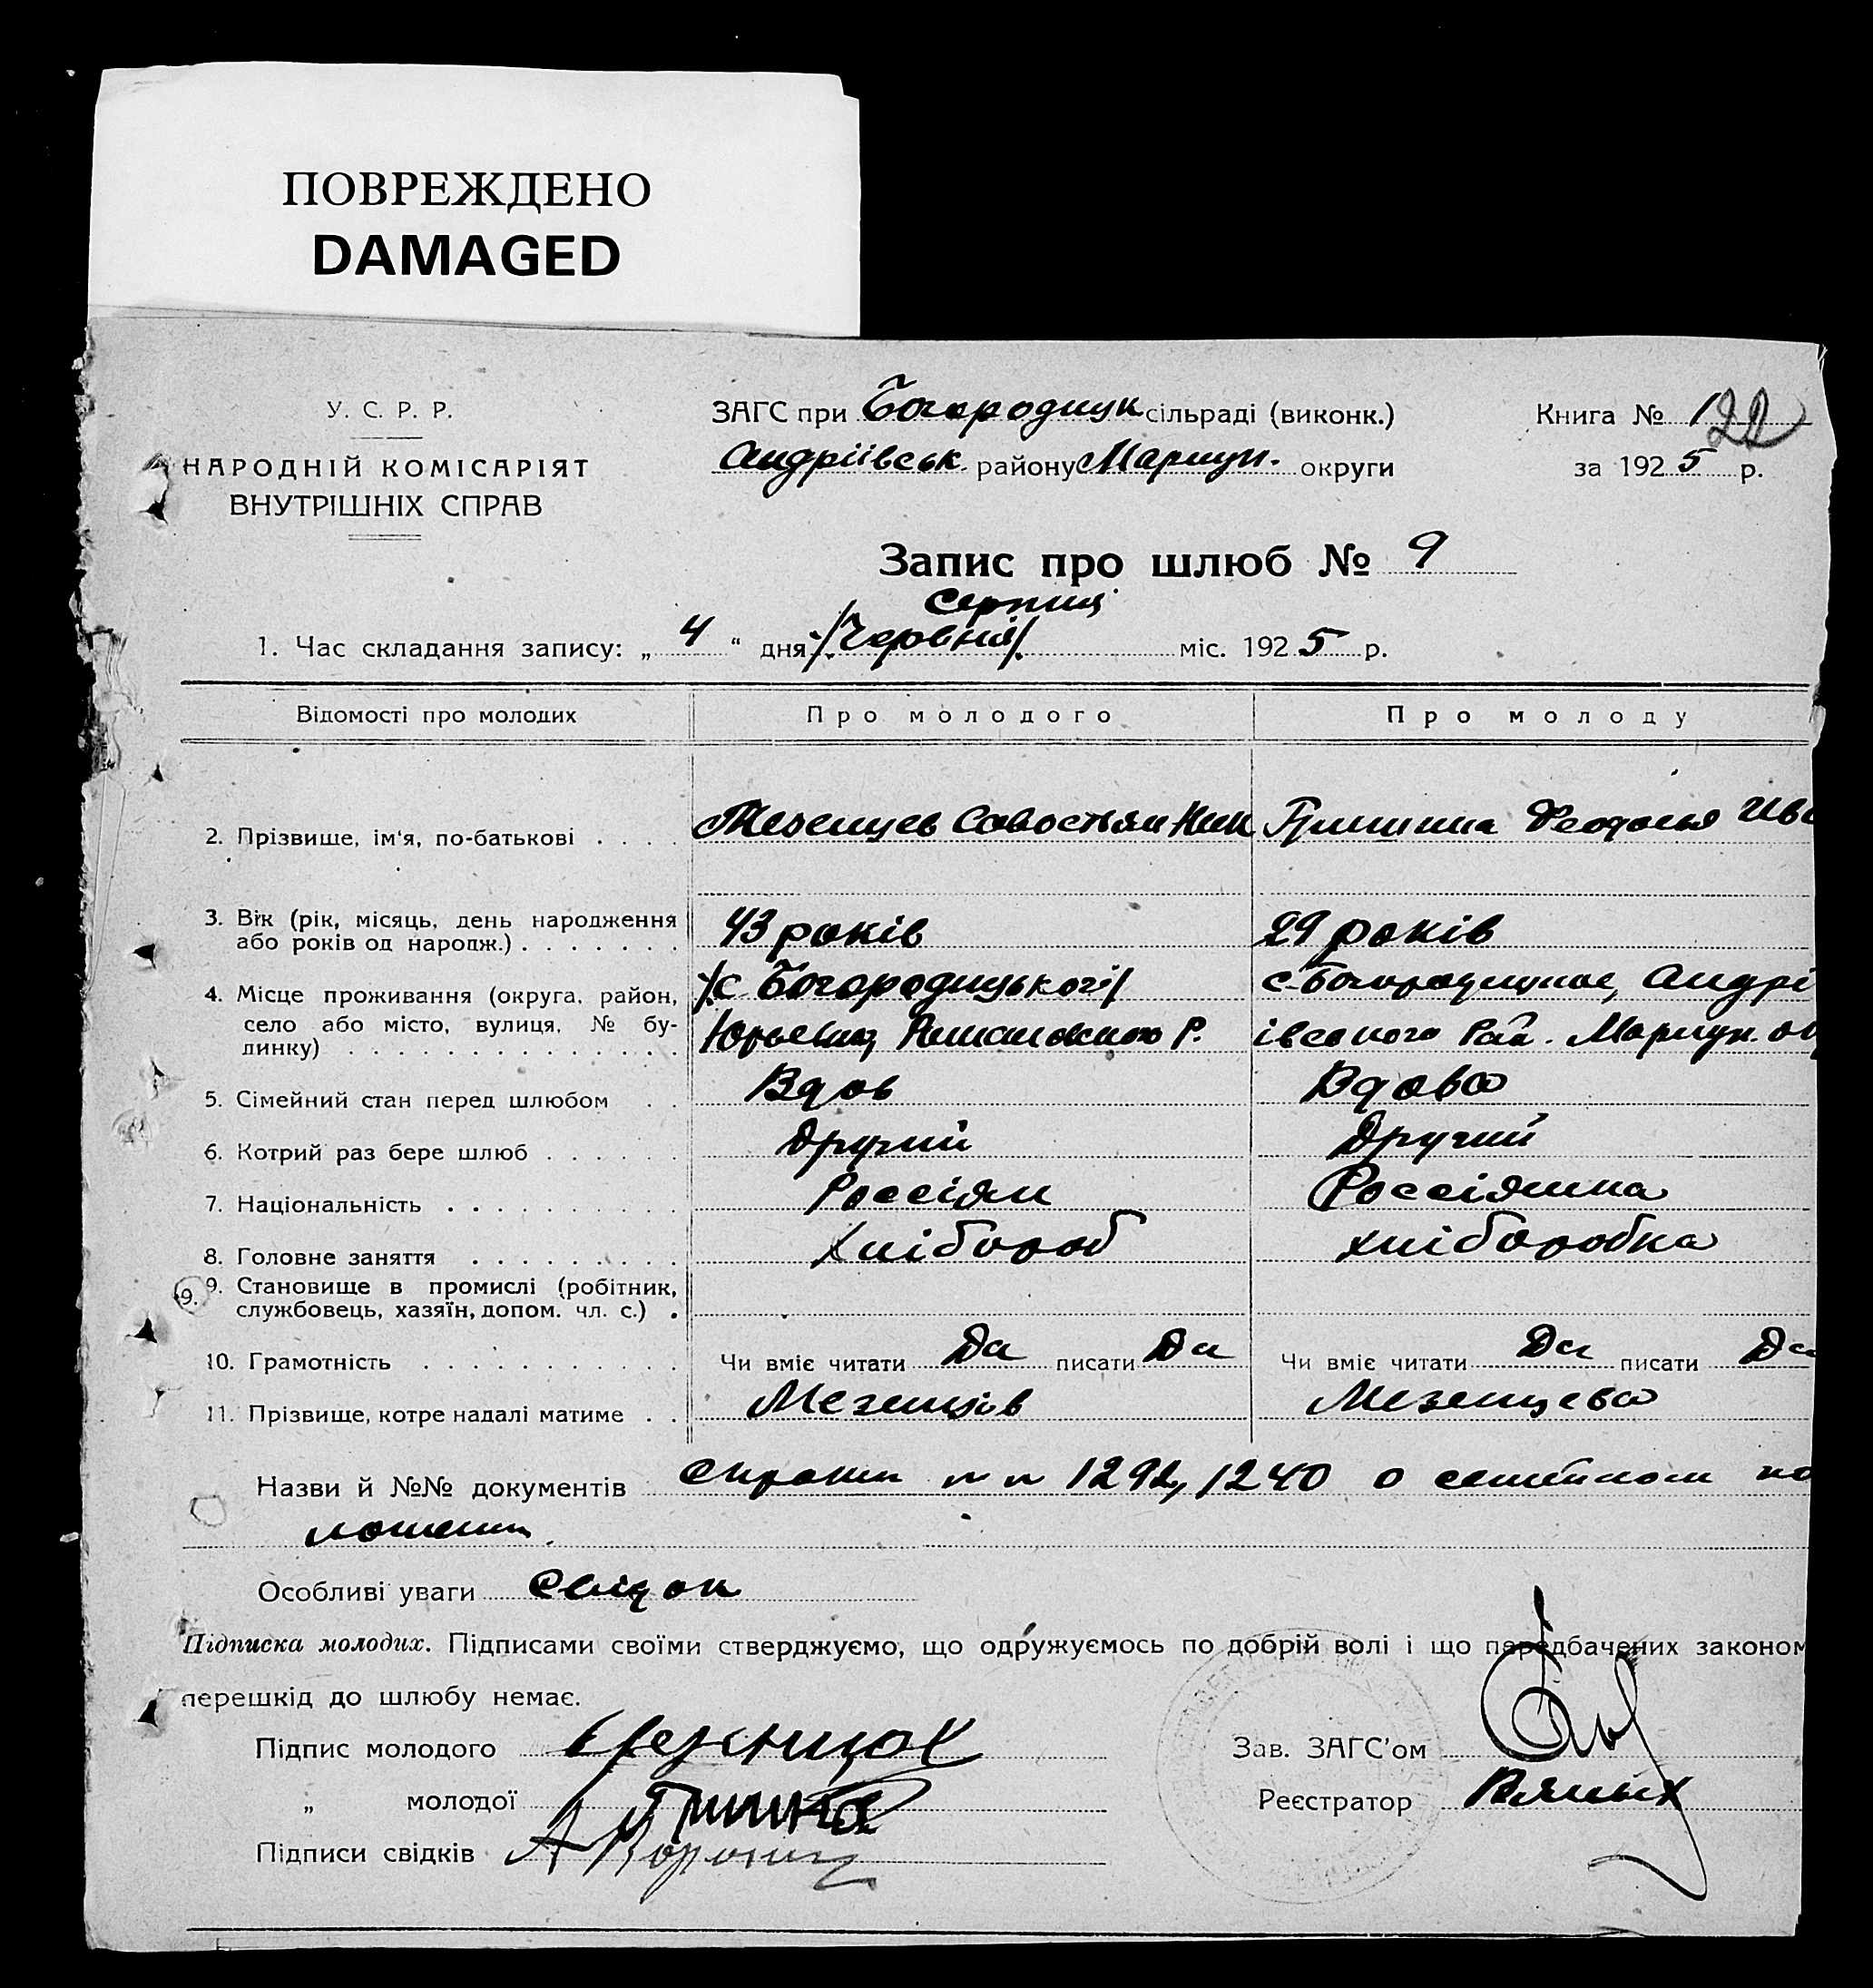 ПОВРЕЖДЕНО
DAMAGED
У. С. Р. Р.
НАРОДНІЙ КОМІСАРІЯТ
ВНУТРІШНІХ СПРАВ
ЗАГС при Богородицк сільраді (виконк.)
Андріівськ. району Мариуп. округи
Книга № 122
за 1925 р.
Запис про шлюб № 9
Серпня
1. Час складання запису: „ 4 “ дня /Червня/ міс. 1925 р.
Відомості про молодих Про молодого Про молоду
2. Прізвище, ім'я, по-батькові . . . . Мезенцев Савостьян Ник Гришина Феодосья Ива
3. Вік (рік, місяць, день народження
або років од народж.) . . . . . . . 43 років 29 років
4. Місце проживання (округа, район, /с Богородицького/ с-Богородицкое, Андрі
село або місто, вулиця, № бу-
динку) . . . . . . . . . . . . . . Р. івського Рай. Мариуп. ок
5. Сімейний стан перед шлюбом . . Вдов Вдова
6. Котрий раз бере шлюб . . . . . . Другий Другий
7. Національність . . . . . . . . . . Россіян Россіянка
8. Головне заняття . . . . . . . . . Хлібороб хлiборобка
9. 9. Становище в промислі (робітник,
службовець, хазяїн, допом. чл. с.) .
10. Грамотність . . . . . . . . . . . . Чи вміє читати Да писати Да Чи вміє читати Да писати Да
11. Прізвище, котре надалі матиме . . Мезенцов Мезенцева
Назви й №№ документів 1292, 1240 о семейном по
ложении
Особливі уваги
Підписка молодих. Підписами своїми стверджуємо, що одружуємось по добрій волі і що передбачених законом
перешкід до шлюбу немає.
Підпис молодого Мезенцов
„ молодої Гришина
Підписи свідків
Зав. ЗАГС'ом
Реєстратор